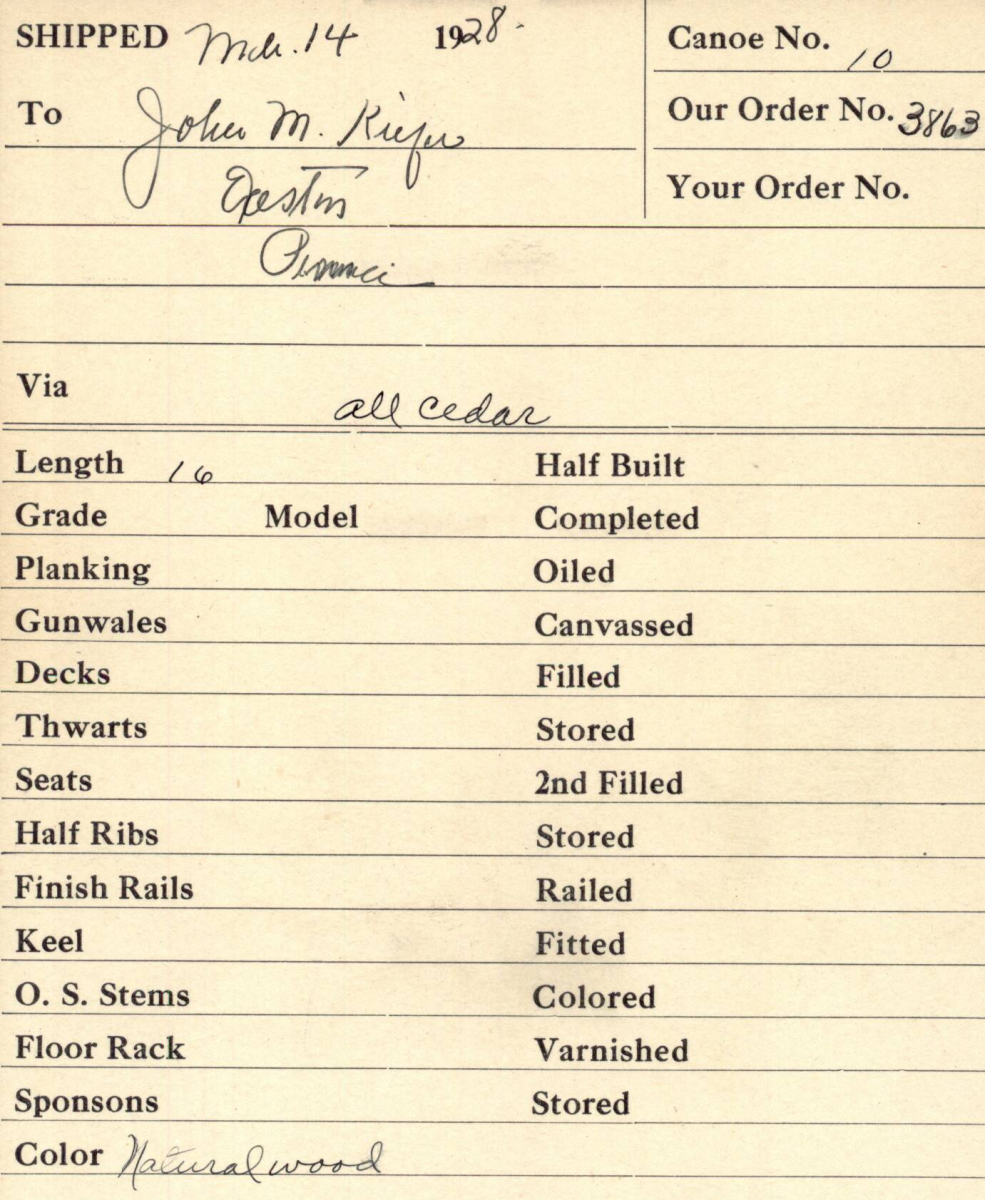 SHIPPED Mch. 14 1928. Canoe No. 10
To John M. Kiefer Our Order No. 3863
Easton Your Order No.
Penna
Via all cedar
Length 16 Half Built
Grade Model Completed
Planking Oiled
Gunwales Canvassed
Decks Filled
Thwarts Stored
Seats 2nd Filled
Half Ribs Stored
Finish Rails Railed
Keel Fitted
O. S. Stems Colored
Floor Rack Varnished
Sponsons Stored
Color Natural wood